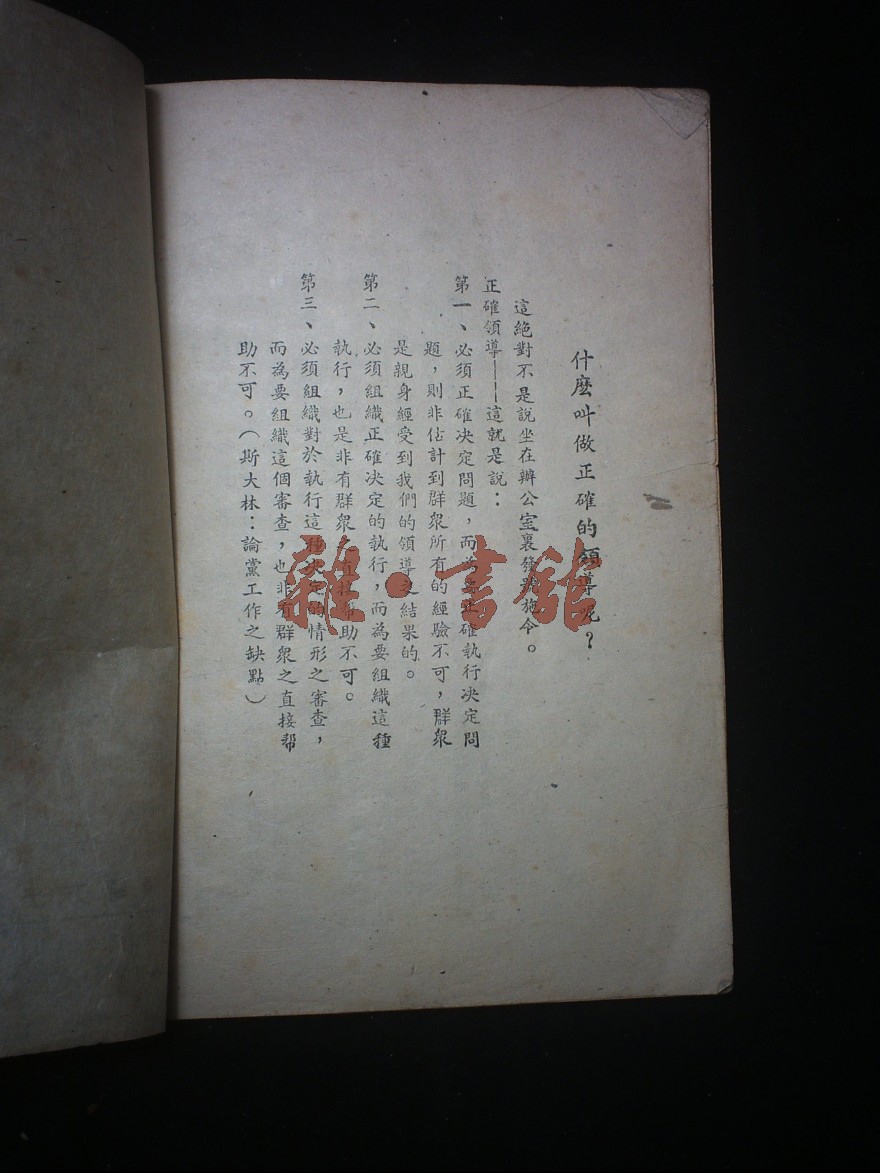 什麽叫做正確的領導呢？
這絕對不是說坐在辦公室裏發號施令。
正確領導——這就是說：
第一、必須正確决定問題，而為要正確执行决定問
題，則非估計到群眾所有的經驗不可，群眾
是親身經受到我們的領導之結果的。
第二、必須組織正確决定的执行，而為要組織這種
执行，也是非有群眾之直接帮助不可。
第三、必須組織對於执行這種决定的情形之審查，
而為要組織這個審查，也非有群眾之直接帮
助不可。（斯大林：論黨工作之缺點）
雜·書館